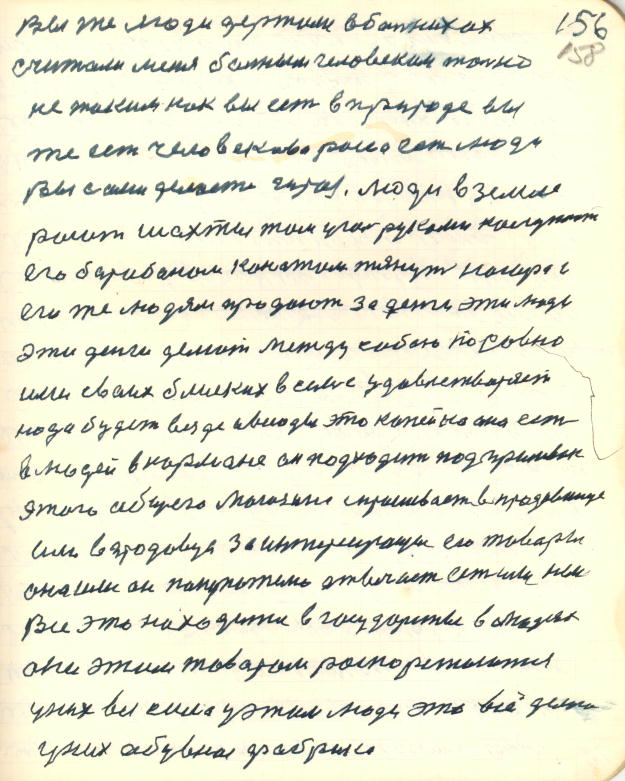 156
158
Вы же люди держали в болницах
считали меня болным человеком точно
не таким как вы есть в природе вы
же ест человекова роса ест люди
Вы сами делаете. люди в земле
роют шахты там угол руками копают
его барабаном канатом тянут нагора и
его же людям продают за денги эти люди
эти денги делют между собою поровно
или своих блиских в семе удовлетворяет
нада будет везде и всюды это копейка она ест
в людей в кормане он подходит под прилавок
этого общего магазина спрашивает в продавнице
или в продовца за интересующие его товары
она или он покупателю отвечает ест или нет
Все это находится в государстве в людях
они этим товаром роспорежаются
у них вся сила у этим люди это всё дело
у них обувная фабрика